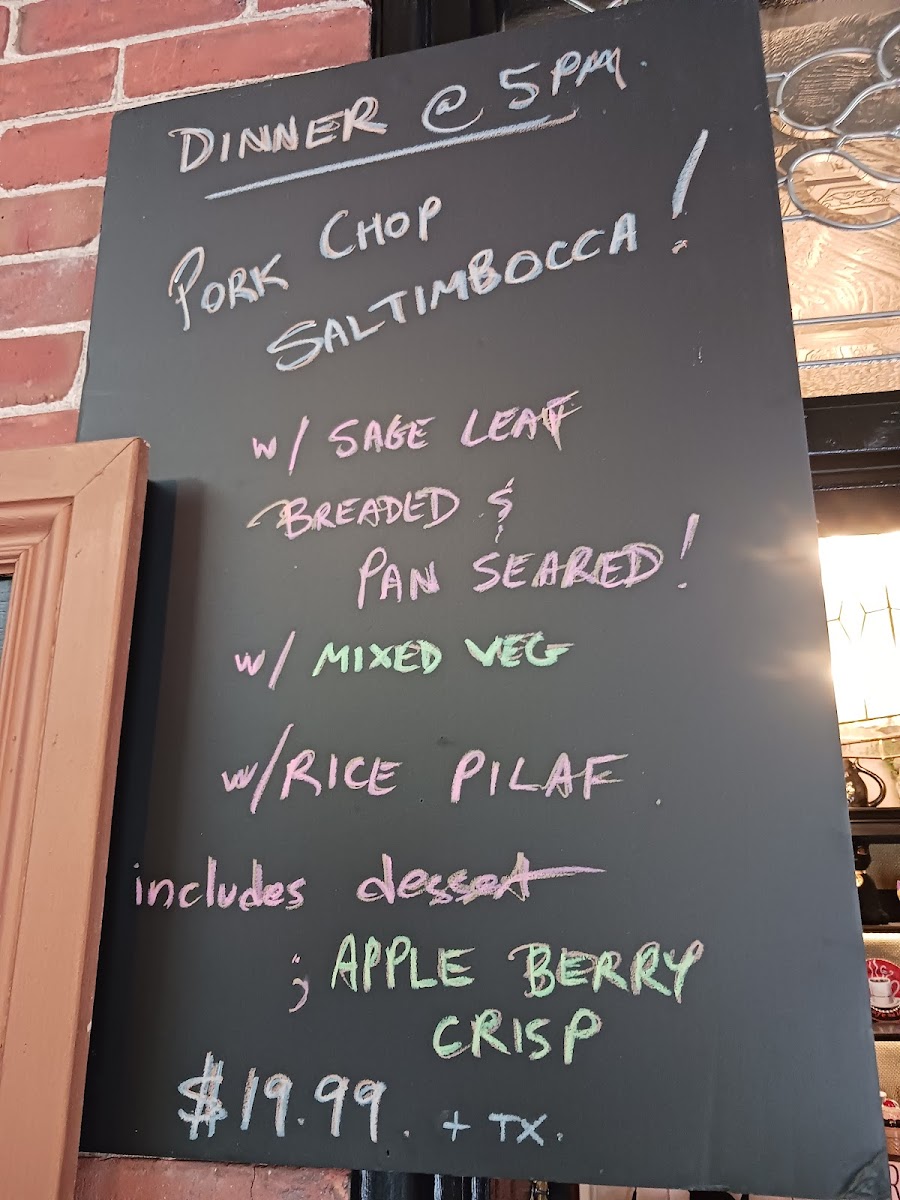 DINNER @ 5PM.
PORK CHOP
SALTIMBOCCA!
w/ SAGE LEAF
BREADED &
PAN SEARED!
w/ MIXED VEG
w/RICE PILAF
includes dessert
; APPLE BERRY
CRISP
$19.99. + TX.